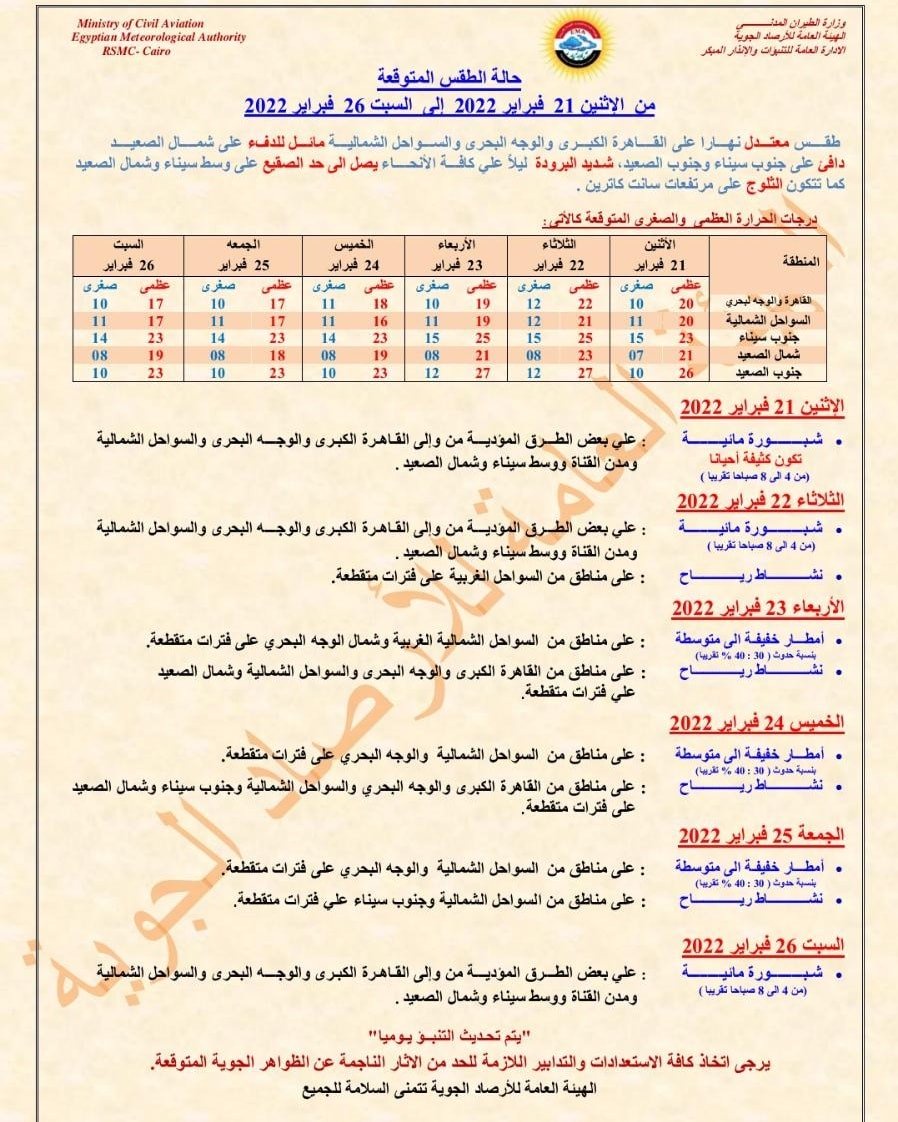 Ministry of Civil Aviation
Egyptian Meteorological Authority
RSMC- Cairo
وزارة الطيران المدنـــــي
الهيئة العامة للأرصاد الجوية
الإدارة العامة للتنبؤات والإنذار المبكر
EMA
حالة الطقس المتوقعة
من الإثنين 21 فبراير 2022 إلى السبت 26 فبراير 2022
طقـــس معتــدل نهـارا على القـــاهرة الكبـرى والوجه البحرى والســواحل الشماليـــة مائــل للدفء على شمـال الصعيــد
دافئ على جنوب سيناء وجنوب الصعيد، شديد البرودة ليلاً علي كافــة الأنحــاء يصل الى حد الصقيع على وسط سيناء وشمال الصعيد
كما تتكون الثلوج على مرتفعات سانت كاترين .
درجات الحرارة العظمى والصغرى المتوقعة كالأتى:
المنطقة الأثنين الثلاثاء الأربعاء الخميس الجمعه السبت
21 فبراير 22 فبراير 23 فبراير 24 فبراير 25 فبراير 26 فبراير
عظمى صغرى عظمى صغرى عظمى صغرى عظمى صغرى عظمى صغرى عظمى صغرى
القاهرة والوجه لبحري 20 10 22 12 19 10 18 11 17 10 17 10
السواحل الشمالية 20 11 21 12 19 11 16 11 17 11 17 11
جنوب سيناء 23 15 25 15 25 15 23 14 23 14 23 14
شمال الصعيد 21 07 23 08 21 08 19 08 18 08 19 08
جنوب الصعيد 26 10 27 12 27 12 23 10 23 10 23 10
الإثنين 21 فبراير 2022
• شبـــــورة مائيـــــة : علي بعض الطــرق المؤديــة من وإلى القـاهرة الكبرى والوجــه البحرى والسواحل الشمالية
تكون كثيفة أحيانا ومدن القناة ووسط سيناء وشمال الصعيد .
(من 4 الى 8 صباحا تقريبا )
الثلاثاء 22 فبراير 2022
• شبـــــورة مائيـــــة : علي بعض الطــرق المؤديــة من وإلى القـاهرة الكبرى والوجــه البحرى والسواحل الشمالية
(من 4 الى 8 صباحا تقريبا ) ومدن القناة ووسط سيناء وشمال الصعيد .
• نشـــــاط ريـــــاح : على مناطق من السواحل الغربية على فترات متقطعة.
الأربعاء 23 فبراير 2022
• أمطــار خفيفـة الى متوسطة : على مناطق من السواحل الشمالية الغربية وشمال الوجه البحري على فترات متقطعة.
بنسبة حدوث ( 30 : 40 % تقريبا)
• نشـــــاط ريـــــاح : على مناطق من القاهرة الكبرى والوجه البحرى والسواحل الشمالية وشمال الصعيد
علي فترات متقطعة.
الخميس 24 فبراير 2022
• أمطــار خفيفـة الى متوسطة : على مناطق من السواحل الشمالية والوجه البحري على فترات متقطعة.
بنسبة حدوث ( 30 : 40 % تقريبا)
• نشـــــاط ريـــــاح : على مناطق من القاهرة الكبرى والوجه البحري والسواحل الشمالية وجنوب سيناء وشمال الصعيد
على فترات متقطعة.
الجمعة 25 فبراير 2022
• أمطــار خفيفـة الى متوسطة : على مناطق من السواحل الشمالية والوجه البحري على فترات متقطعة.
بنسبة حدوث ( 30 : 40 % تقريبا)
• نشـــــاط ريـــــاح : على مناطق من السواحل الشمالية وجنوب سيناء علي فترات متقطعة.
السبت 26 فبراير 2022
• شبـــــورة مائيـــــة : علي بعض الطــرق المؤديــة من وإلى القـاهرة الكبرى والوجــه البحرى والسواحل الشمالية
(من 4 الى 8 صباحا تقريبا ) ومدن القناة ووسط سيناء وشمال الصعيد .
"يتم تحديث التنبـؤ يـوميا"
يرجى اتخاذ كافة الاستعدادات والتدابير اللازمة للحد من الآثار الناجمة عن الظواهر الجوية المتوقعة.
الهيئة العامة للأرصاد الجوية تتمنى السلامة للجميع
الهيئة العامة للأرصاد الجوية